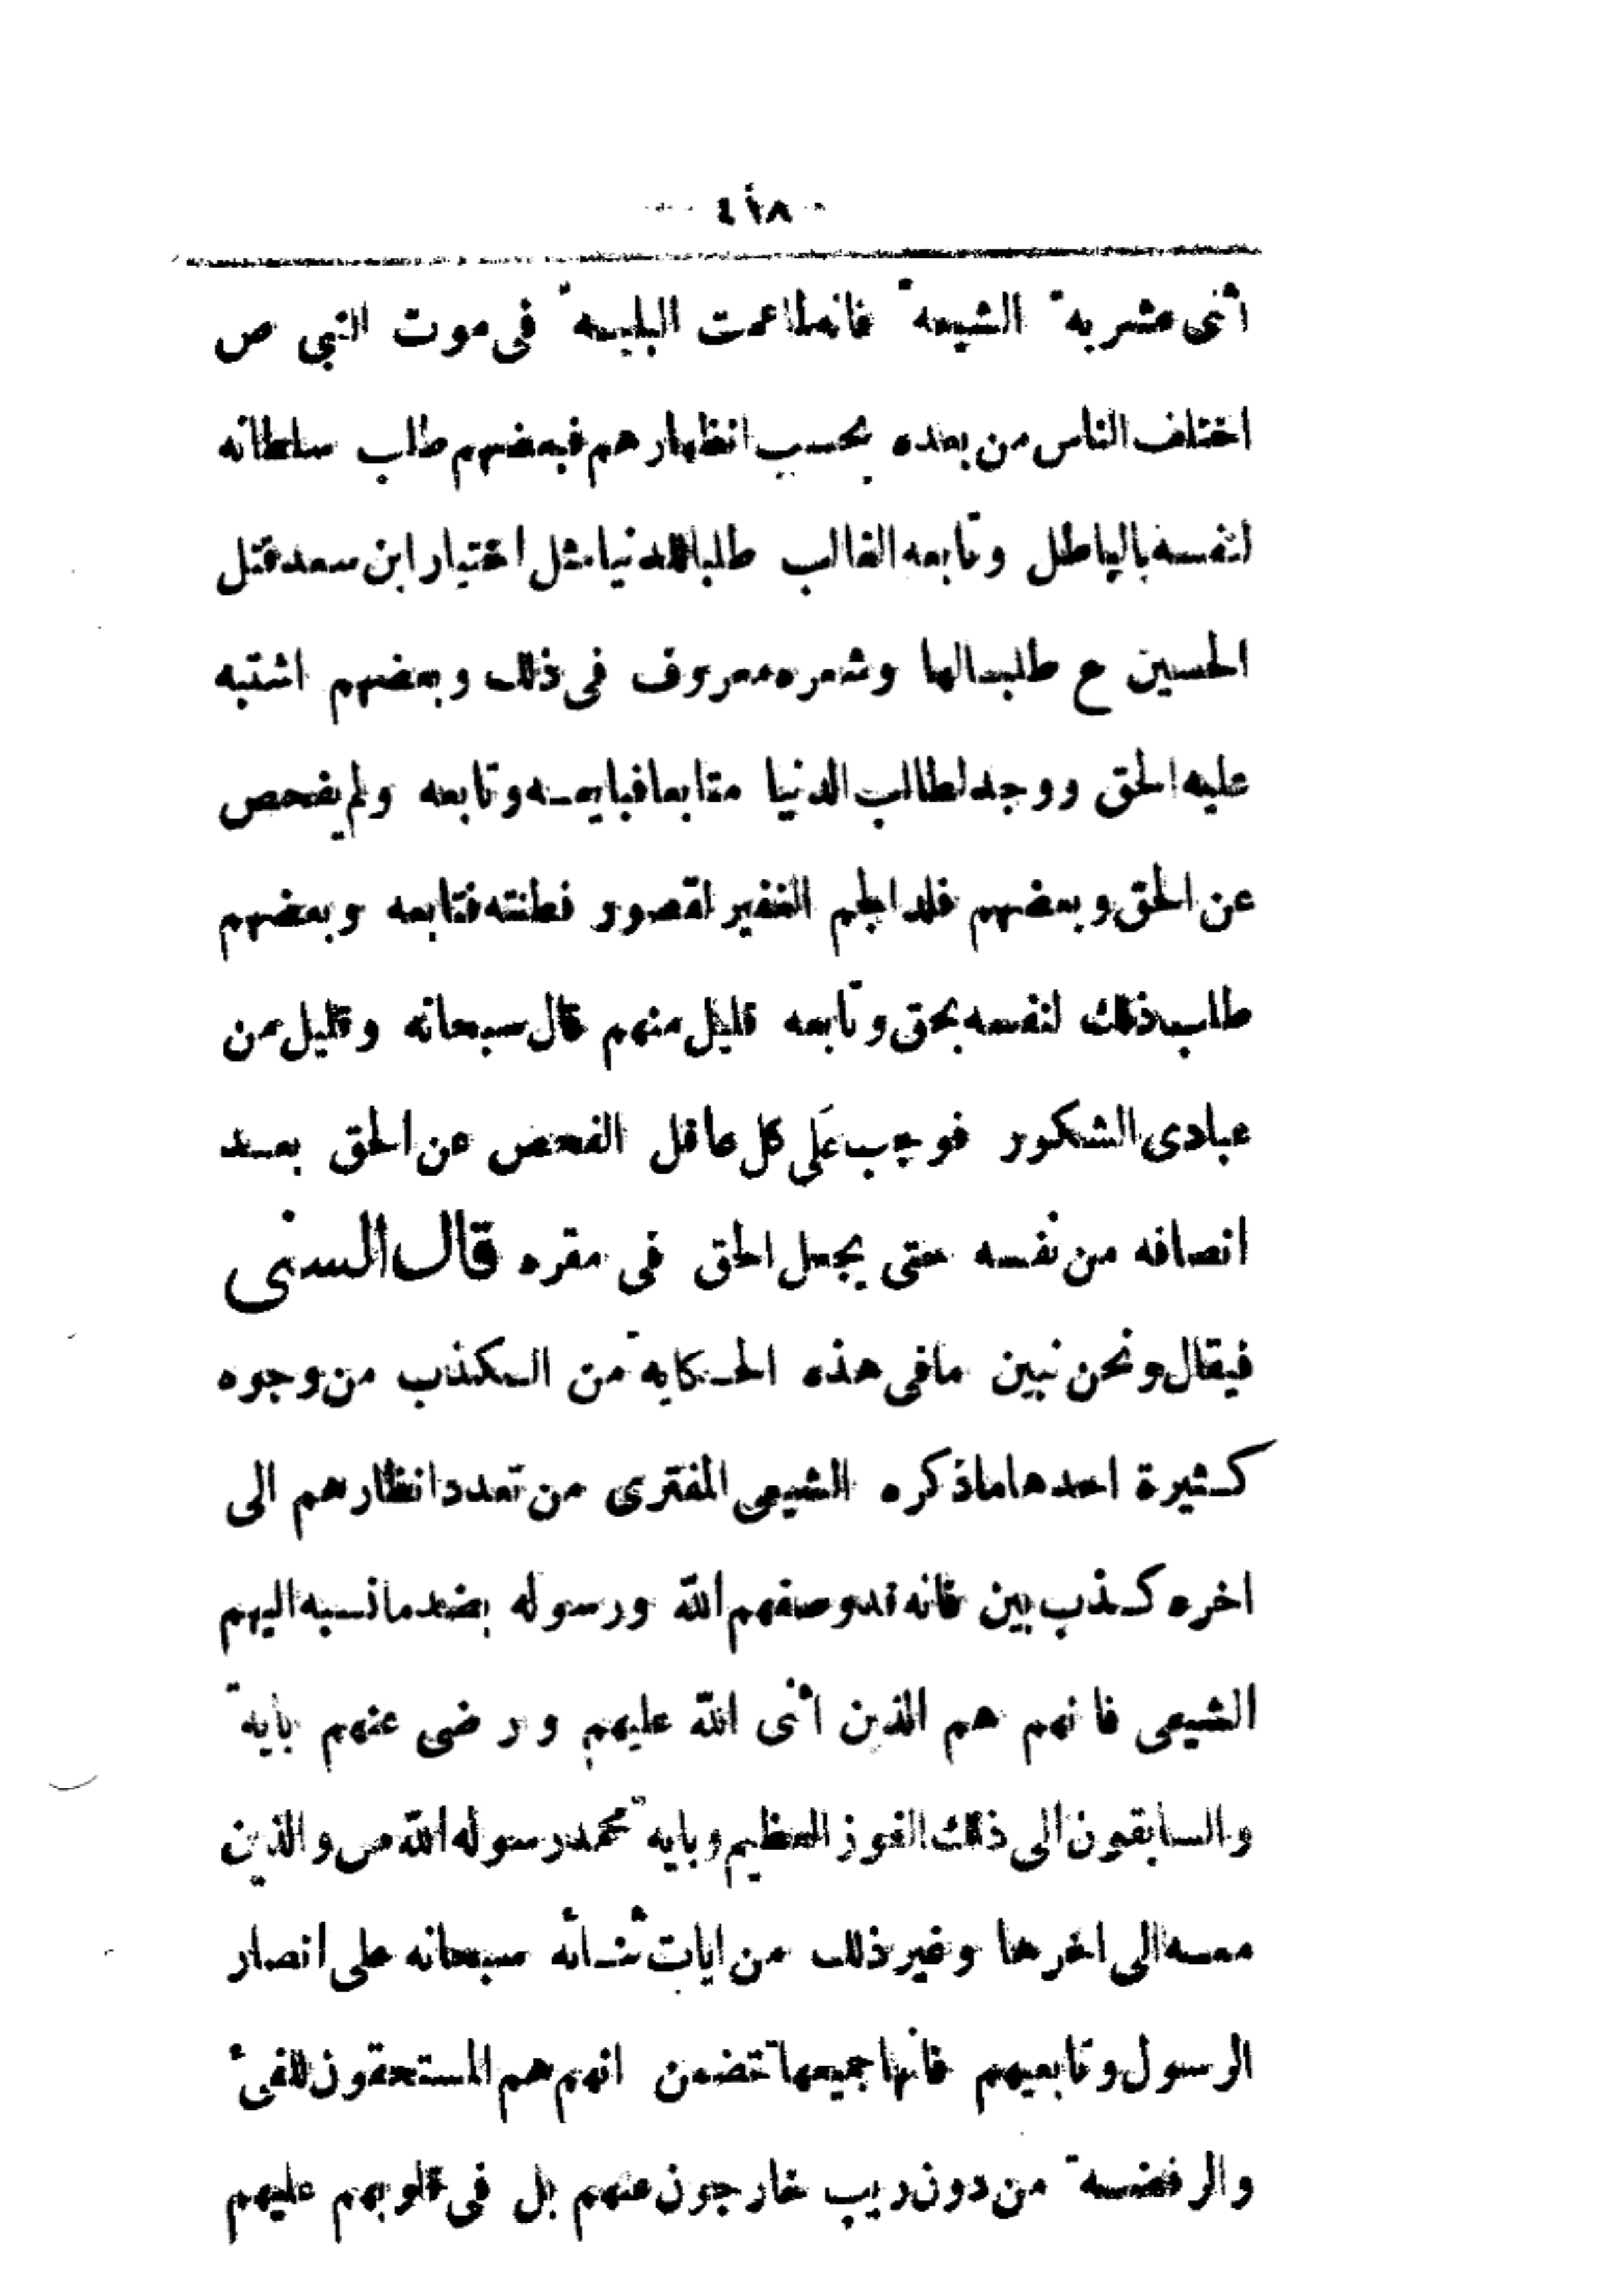 ٤١٨
أثنى عشرية الشيعة فانه لما عمت البلية فى موت النبي ص
اختلف الناس من بعده بحسب انظارهم فبعضهم طلب سلطانه
لنفسه بالباطل وتابعه الغالب طلبا للدنيا مثل اختيار ابن سعد قتل
الحسين ع طلبا لها وشعره معروف فى ذلك وبعضهم اشتبه
عليه الحق ووجد لطالب الدنيا متابعا فبايعه وتابعه ولم يفحص
عن الحق وبعضهم قلد الجم الغفير لقصور فطنته فتابعه وبعضهم
طلب ذلك لنفسه بحق وتابعه قليل منهم قال سبحانه وقليل من
عبادى الشكور فوجب على كل عاقل الفحص عن الحق بعد
انصافه من نفسه حتى يجعل الحق فى مقره قال السنى
فيقال ونحن نبين ما فى هذه الحكاية من الكذب من وجوه
كثيرة احدها ما ذكره الشيعى المفترى من تعدد انظارهم الى
اخره كذب بين فانه قد وصفهم الله ورسوله بضد ما نسبه اليهم
الشيعى فانهم هم الذين اثنى الله عليهم ورضى عنهم بأية
والسابقون الى ذلك الفوز العظيم وباية محمد رسوله الله ص والذين
معه الى اخرها وغير ذلك من ايات ثنائه سبحانه على انصار
الرسول وتابعيهم فانها جميعها تتضمن انهم هم المستحقون للفىء
والرفضة من دون ريب خارجون عنهم بل فى قلوبهم عليهم